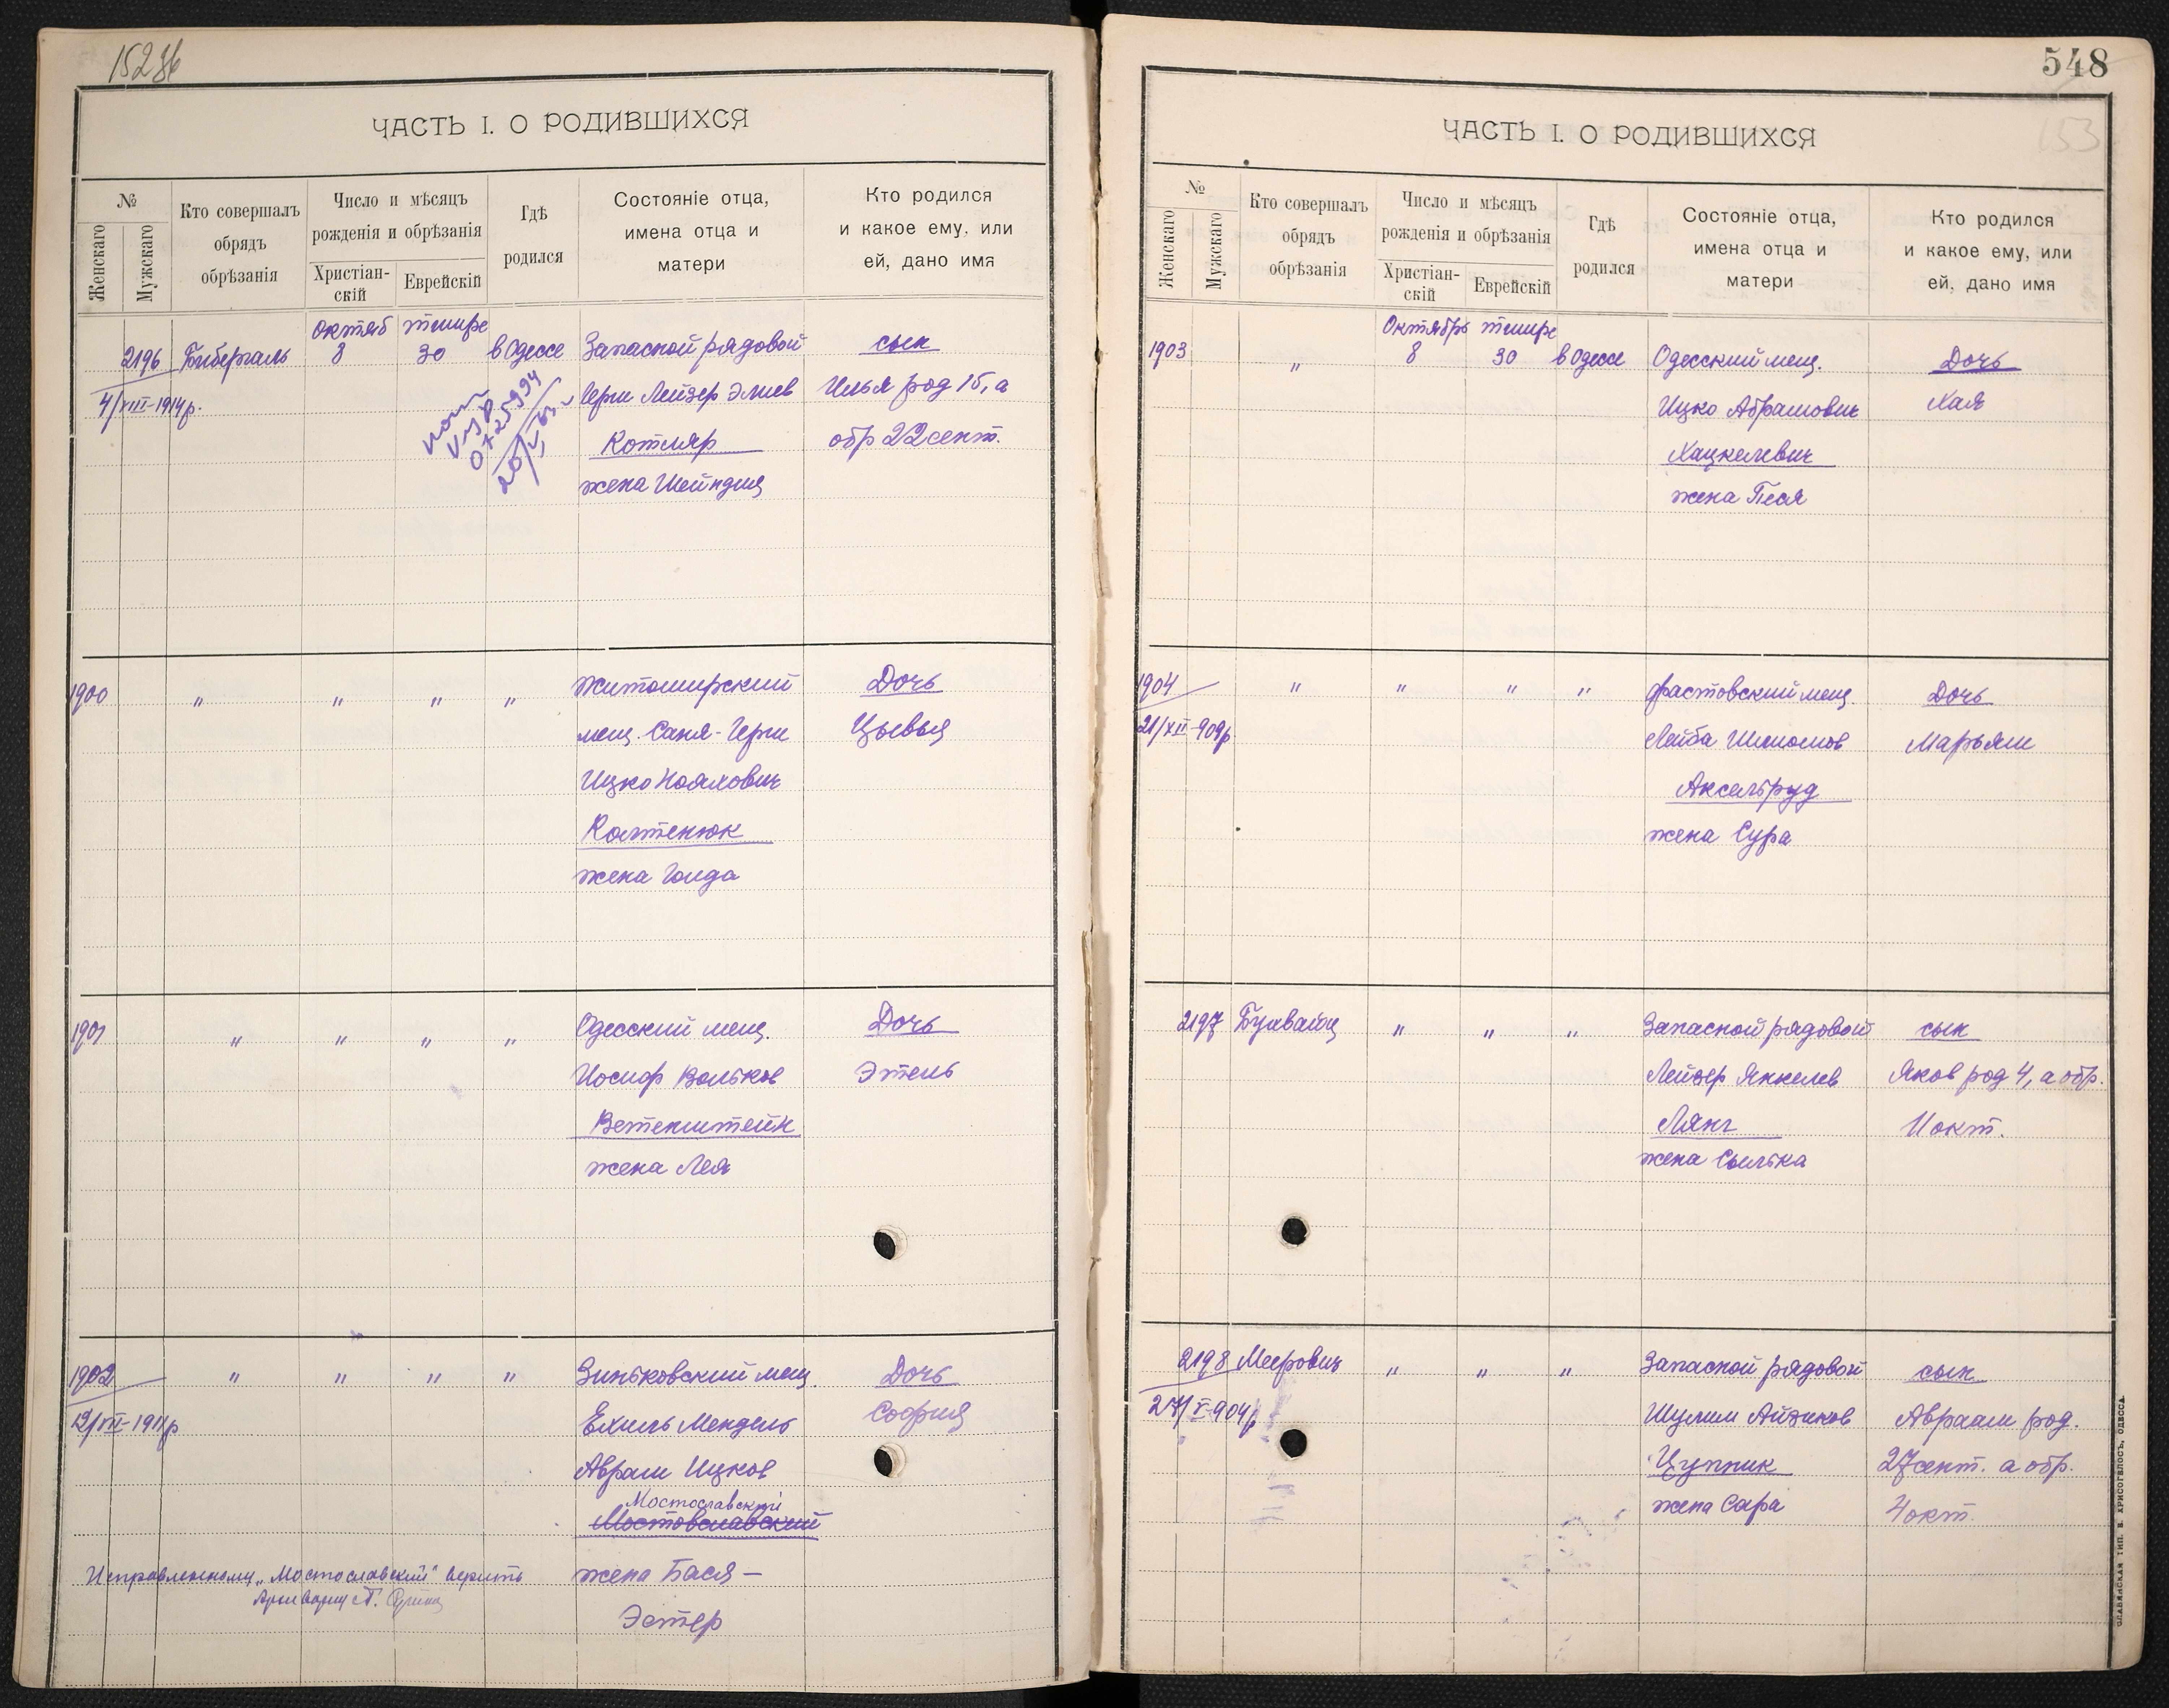 ЧАСТЬ I. О РОДИВШИХСЯ
№
Женскаго
Мужскаго
Кто совершалъ
обрядъ
обрѣзанія
Число и мѣсяцъ
рожденія и обрѣзанія
Христіан-
скій
Еврейскій
Гдѣ
родился
Состояніе отца,
имена отца и
матери
Кто родился
и какое ему, или
ей, дано имя
октяб тишре
2196 Бибергаль 8 30 в Одессе Запасной рядовой сын
4/VIII-1914р. Герш Лейзер Элиев Илья род 15, а
Котляр обр 22 сент.
жена Шейндля
1900 " " " " Житомирский Дочь
мещ. Саня-Герш Цывья
Ицко Нояхович
Колтенюк
жена Голда
1901 " " " " Одесский мещ. Дочь
Иосиф Вольков Этель
Ветенштейн
жена Лея
1902 " " " " Зиньковский мещ. Дочь
Ехиль Мендель София
Абрам Ицков
Мостославский
Мостовславский
Исправленному „Мостославский" верить жена Бася-
Эстер
548
153
ЧАСТЬ I. О РОДИВШИХСЯ
№
Женскаго
Мужскаго
Кто совершалъ
обрядъ
обрѣзанія
Число и мѣсяцъ
рожденія и обрѣзанія
Христіан-
скій
Еврейскій
Гдѣ
родился
Состояніе отца,
имена отца и
матери
Кто родился
и какое ему, или
ей, дано имя
Октябрь тишре
1903 " 8 30 в Одессе Одесский мещ. Дочь
Ицко Абрамович Хая
Хацкелевич
жена Песя
1904 " " " " Фастовский мещ. Дочь
21/XII-909р Лейба Шломов Марьям
Аксельруд
жена Сура
2197 Бухвайц " " " Запасной рядовой сын
Лейзер Янкелев Яков род 4, а обр.
Лянг 11 окт.
жена Сылька
2198 Меерович " " " Запасной рядовой сын
27/V-904р Шулим Айзиков Авраам род.
Цупник 27 сент. а обр.
жена Сара 4 окт.
СЛАВЯНСКАЯ ТИП. Н. ХРИСОГЕЛОСЪ, ОДЕССА.